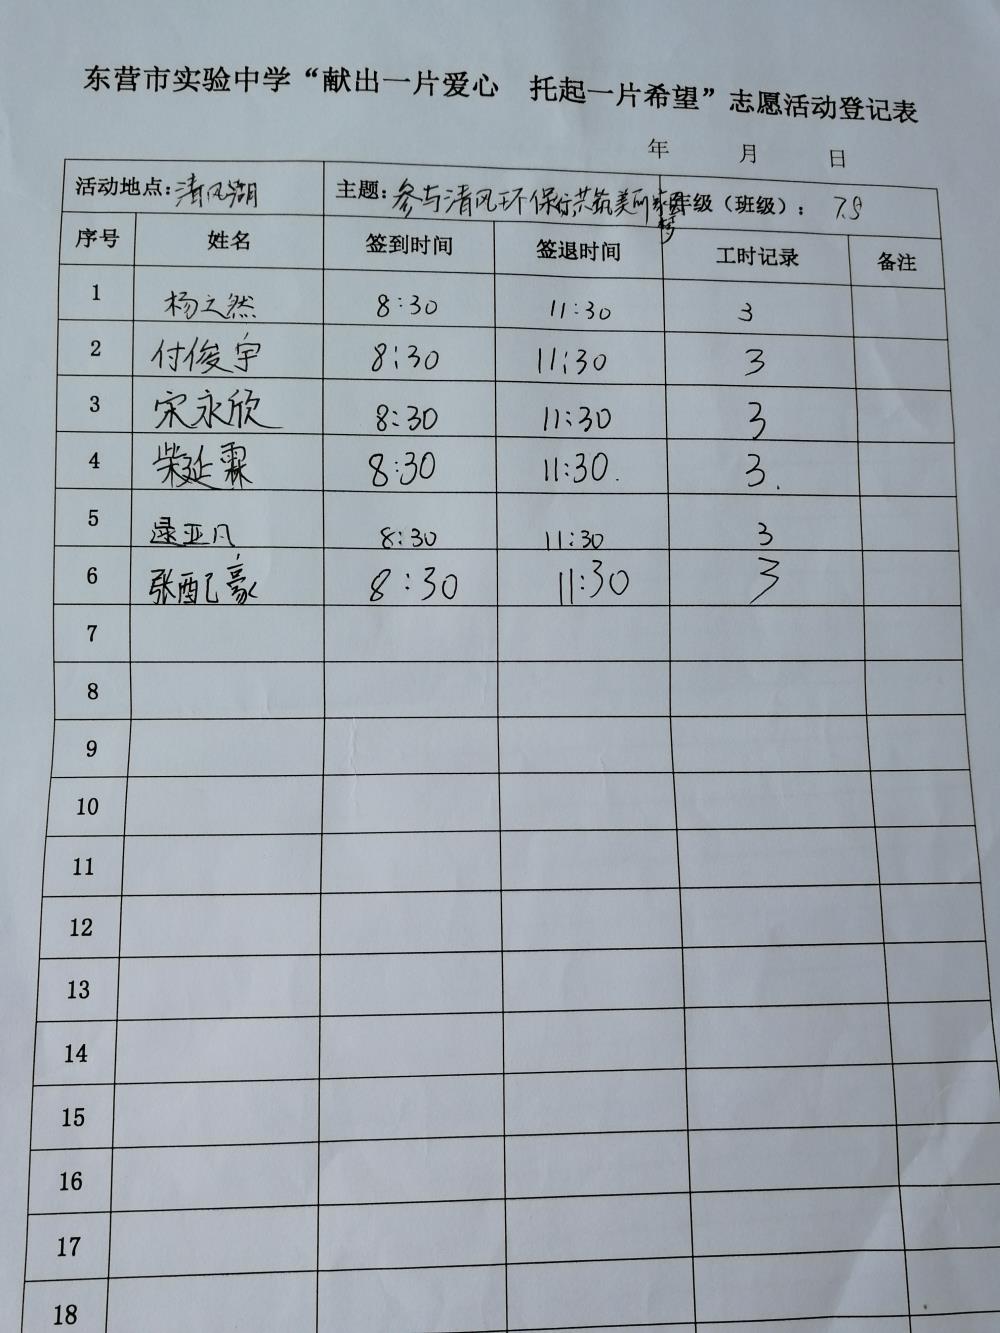 东营市实验中学“献出一片爱心 托起一片希望”志愿活动登记表
年 月 日
活动地点：清风湖 主题：参与清风环保 共筑美丽家园梦 年级（班级）： 7.8
序号 姓名 签到时间 签退时间 工时记录 备注
1 杨之然 8:30 11:30 3
2 付俊宇 8:30 11:30 3
3 宋永欣 8:30 11:30 3
4 柴延霖 8:30 11:30. 3.
5 亚凡 8:30 11:30 3
6 张酡豪 8:30 11:30 3
7
8
9
10
11
12
13
14
15
16
17
18